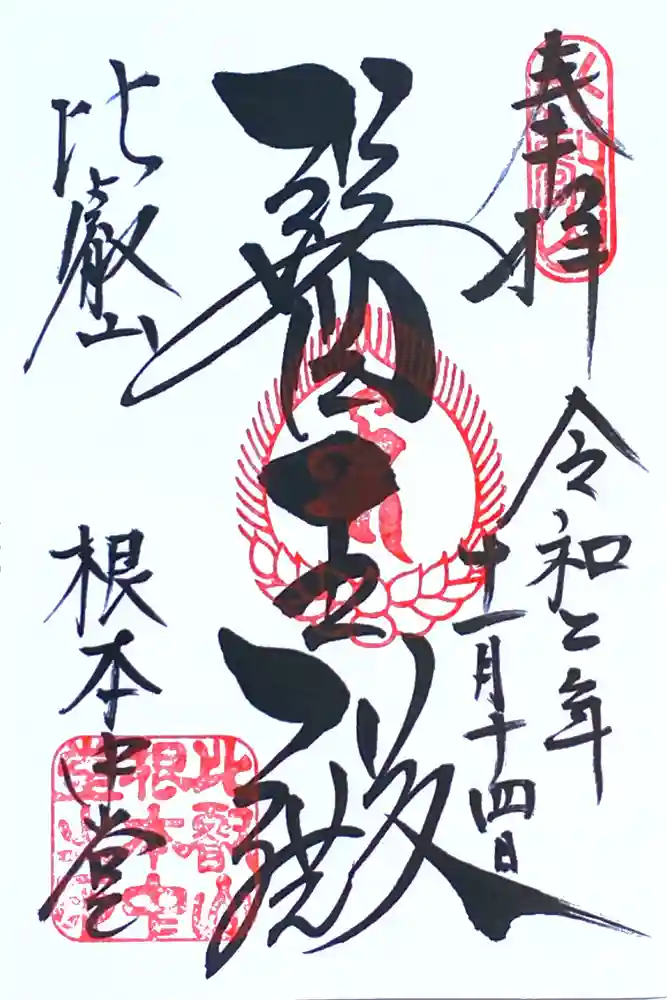 奉拝
令和二年
十一月十四日
醫王殿
比叡山
根本中堂
比叡山
根本中
堂之印